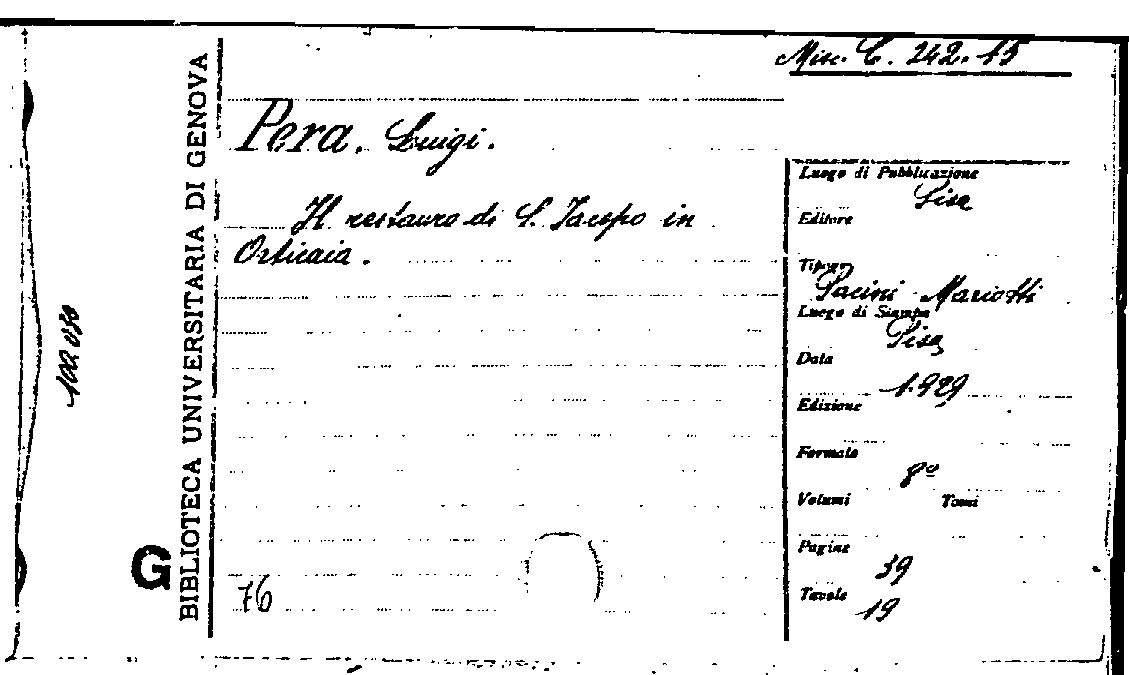 Misc. C. 242. 15
Pera, Luigi.
Il restauro di S. Jacopo in
Orticaia.
76
Luogo di Pubblicazione
Pisa
Editore
Tipogr.
Pacini Mariotti
Luogo di Stampa
Pisa
Data
1929
Edizione
Formato
8º
Volumi Tomi
Pagine
39
Tavole
19
BIBLIOTECA UNIVERSITARIA DI GENOVA
G